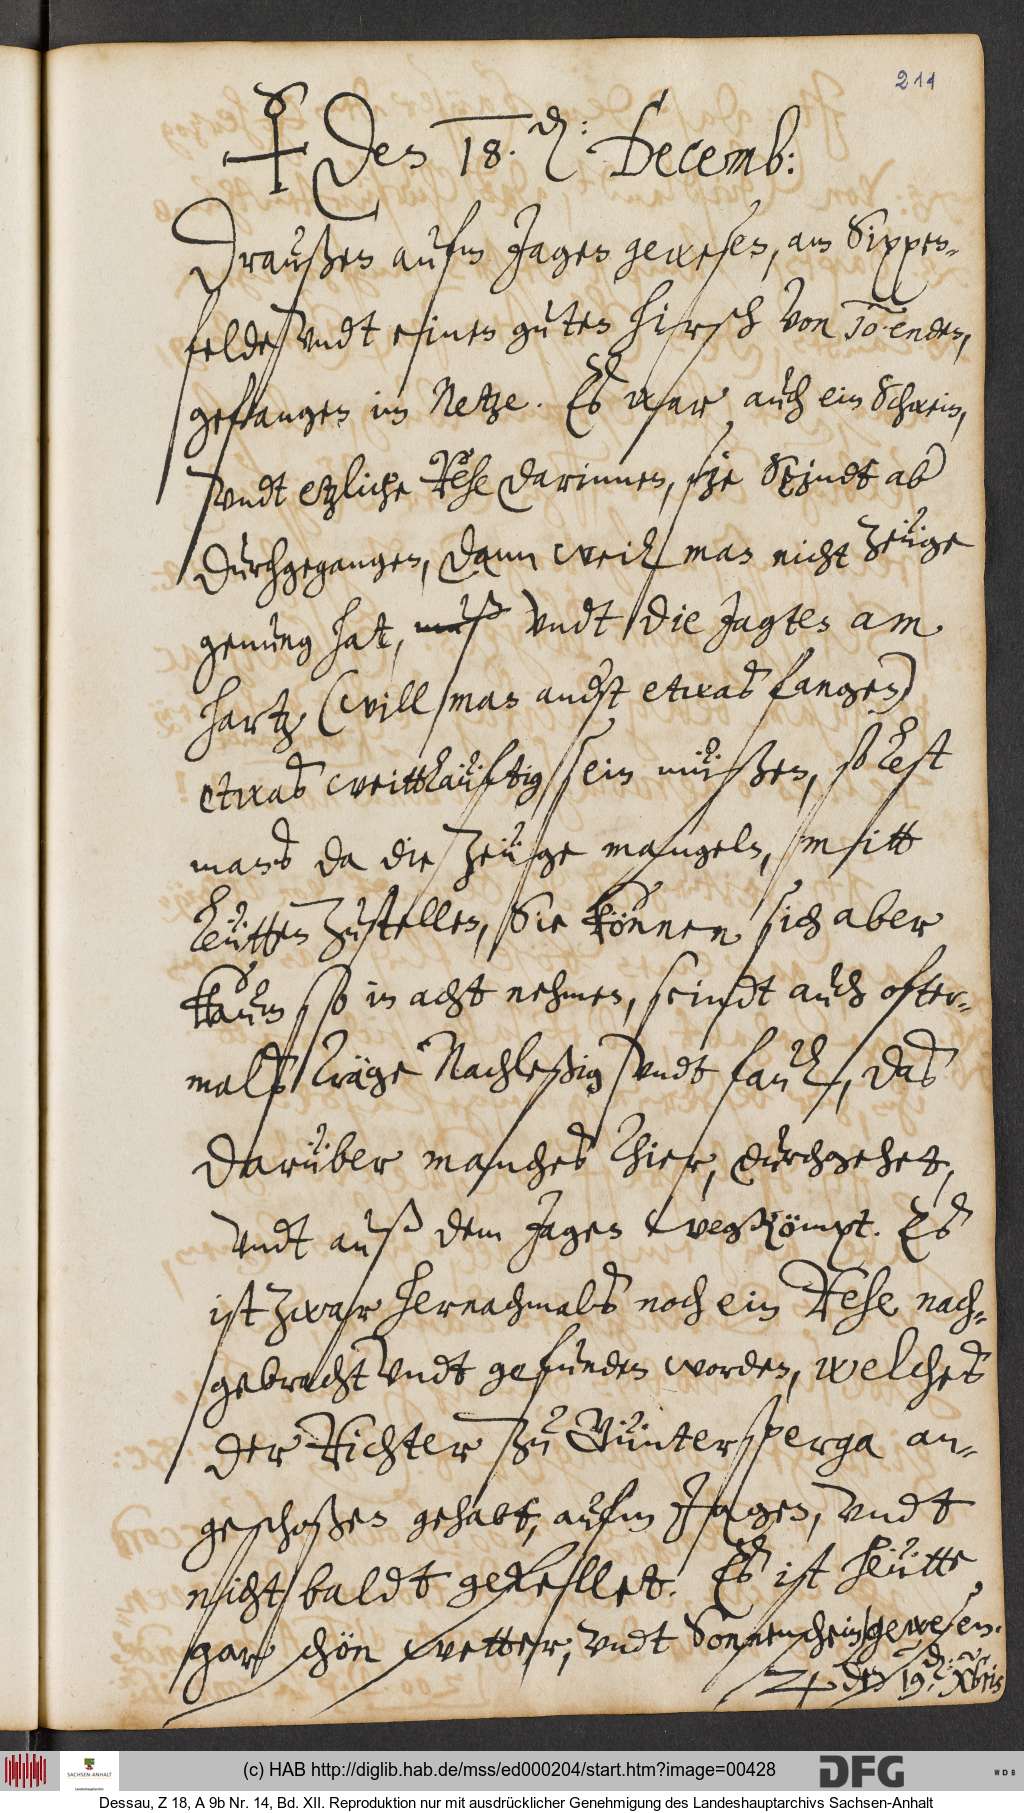 211
Den 18. d: Decemb:
Draußen aufm Jagen gewesen, am Sippen-
felde, vndt einen guten hirsch von 10. enden,
gefangen im Netze. Es war auch ein Schwein,
vndt etzliche Rehe darinnen, sie Seindt ab
durchgegangen, dann weil man nicht zeüge
genung hat, muß vndt die Jagten am
hartz (will man andst etwas fangen)
etwas weittläüftig sein müßen, so lest
mans da die zeüge mangeln, mitt
leütten zustellen, Sie können sich aber
kaum so in acht nehmen, seindt auch ofter-
mals träge Nachleßig vndt faul, das
darüber manches thier, durchgehet,
vndt auß dem Jagen wegkömpt. Es
ist zwar hernachmals noch ein Rehe nach-
gebracht vndt gefunden worden, welches
der Richter zu Güntersperga an-
geschoßen gehabt, aufm Jagen, vndt
nicht baldt gefellet. Es ist heütte
gar schön wetter, vndt Sonnenschein gewesen.
♃ den 19. d: Xbris
(c) HAB http://diglib.hab.de/mss/ed000204/start.htm?image=00428
SACHSEN-ANHALT
Landeshauptarchiv
DFG
WDB
Dessau, Z 18, A 9b Nr. 14, Bd. XII. Reproduktion nur mit ausdrücklicher Genehmigung des Landeshauptarchivs Sachsen-Anhalt